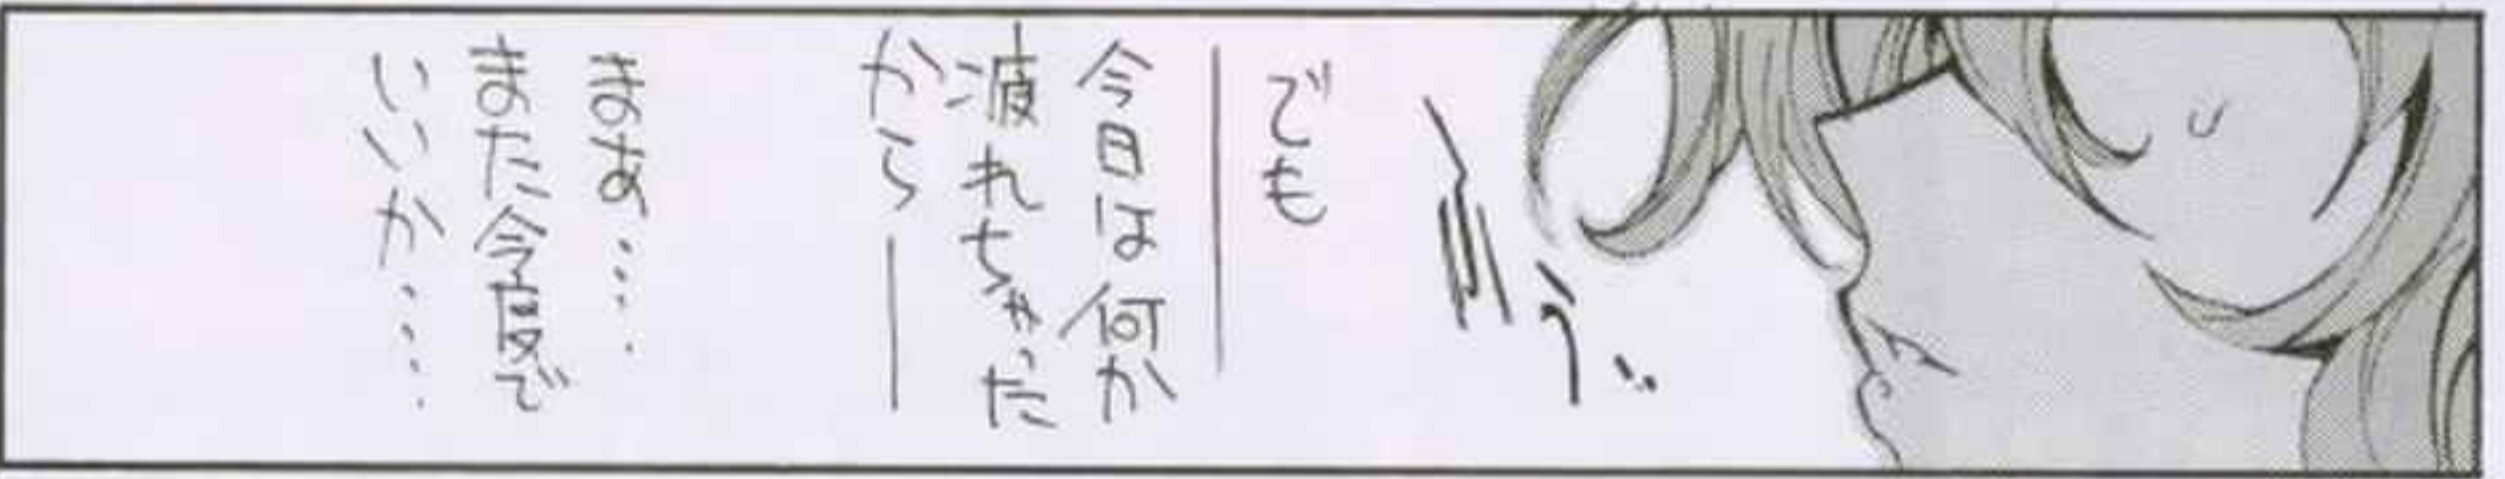 でも
――
今日は何か
疲れちゃった
から――
まあ‥‥
また今度で
いいか‥‥